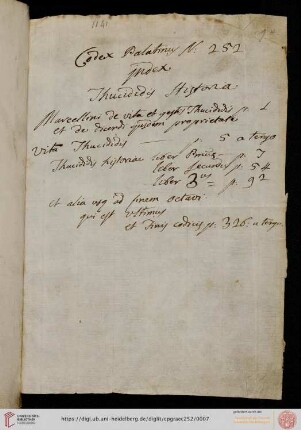 Codex Palatinus N. 252
Index
Thucididis Historia
Marcellini de vita et gestis Thucididis p. 1
et de dicendi ejusdem proprietate
Vita Thucididis — p. 5 a tergo
Thucididis historiae liber Primus p. 7
liber secundus p. 54
liber 3us p. 92
et alia usq ad finem octavi
qui est ultimus
et Finis codicis p. 326 a tergo
https://digi.ub.uni-heidelberg.de/diglit/cpgraec252/0007